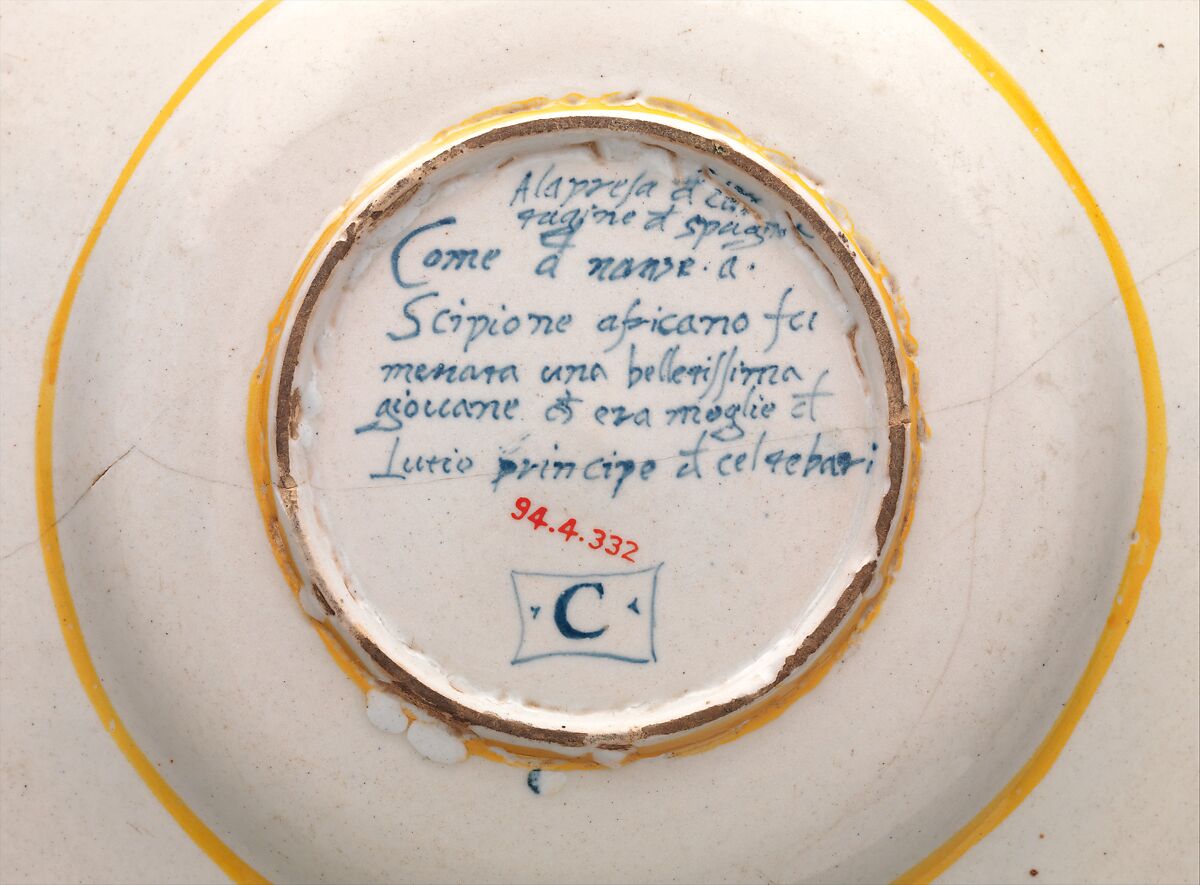 Alapresa d̃ car
tagine d̃ spagna
Come d̃ nanze . a .
Scipione africano fu
menata una belletissima
giovane & era moglie d̃
Lutio principe d̃ celtebari
94.4.332
C